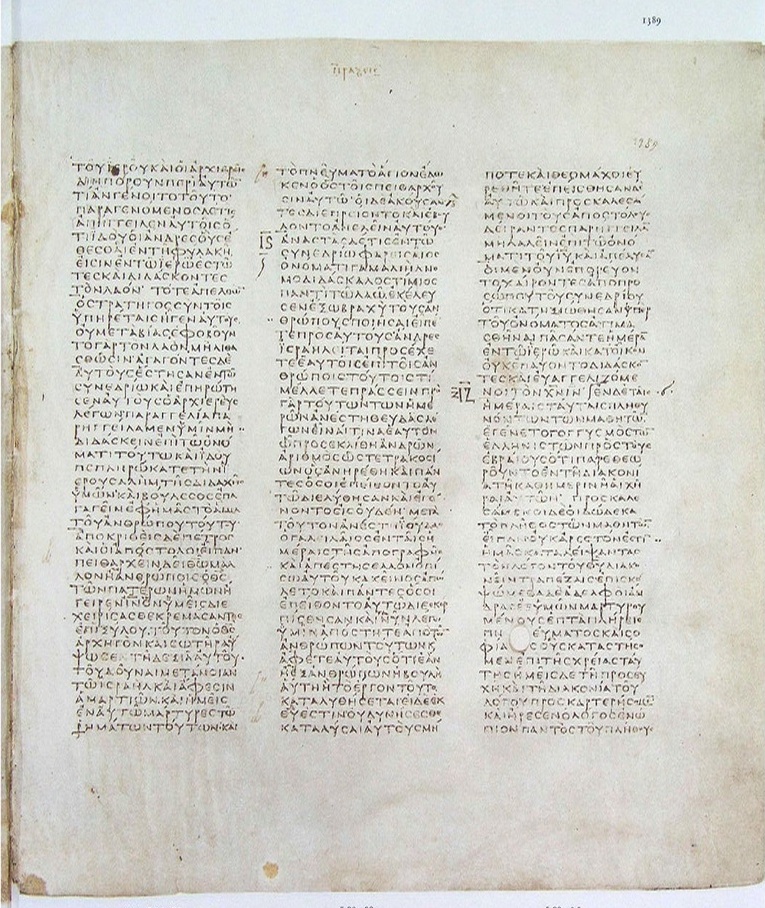 1389
ΠΡΑΞΕΙΣ
1389
ΤΟΥΙΕΡΟΥΚΑΙΟΙΑΡΧΙΕΡΕΙ
ΔΙΗΠΟΡΟΥΝΠΕΡΙΑΥΤΩ
ΤΙΑΝΓΕΝΟΙΤΟΤΟΥΤΟ
ΠΑΡΑΓΕΝΟΜΕΝΟΣΔΕΤΙΣ
ΑΠΗΓΓΕΙΛΕΝΑΥΤΟΙΣΟ
ΤΙΙΔΟΥΟΙΑΝΔΡΕΣΟΥΣΕ
ΘΕΣΘΕΕΝΤΗΦΥΛΑΚΗ
ΕΙΣΙΝΕΝΤΩΙΕΡΩΕΣΤΩ
ΤΕΣΚΑΙΔΙΔΑΣΚΟΝΤΕΣ
ΤΟΝΛΑΟΝ ΤΟΤΕΑΠΕΛΘΩ
ΟΣΤΡΑΤΗΓΟΣΣΥΝΤΟΙΣ
ΥΠΗΡΕΤΑΙΣΗΓΕΝΑΥΤΟΥΣ
ΟΥΜΕΤΑΒΙΑΣΕΦΟΒΟΥΝ
ΤΟΓΑΡΤΟΝΛΑΟΝΜΗΛΙΘΑ
ΣΘΩΣΙΝΑΓΑΓΟΝΤΕΣΔΕ
ΑΥΤΟΥΣΕΣΤΗΣΑΝΕΝΤΩ
ΣΥΝΕΔΡΙΩΚΑΙΕΠΗΡΩΤΗ
ΣΕΝΑΥΤΟΥΣΟΑΡΧΙΕΡΕΥΣ
ΛΕΓΩΝΠΑΡΑΓΓΕΛΙΑΠΑ
ΡΗΓΓΕΙΛΑΜΕΝΥΜΙΝΜΗ
ΔΙΔΑΣΚΕΙΝΕΠΙΤΩΟΝΟ
ΜΑΤΙΤΟΥΤΩΚΑΙΙΔΟΥ
ΠΕΠΛΗΡΩΚΑΤΕΤΗΝΙ
ΕΡΟΥΣΑΛΗΜΤΗΣΔΙΔΑΧΗΣ
ΥΜΩΝΚΑΙΒΟΥΛΕΣΘΕΕΠΑ
ΓΑΓΕΙΝΕΦΗΜΑΣΤΟΑΙΜΑ
ΤΟΥΑΝΘΡΩΠΟΥΤΟΥΤΟΥ
ΑΠΟΚΡΙΘΕΙΣΔΕΠΕΤΡΟΣ
ΚΑΙΟΙΑΠΟΣΤΟΛΟΙΕΙΠΑΝ
ΠΕΙΘΑΡΧΕΙΝΔΕΙΘΕΩΜΑΛ
ΛΟΝΗΑΝΘΡΩΠΟΙΣΟΘΕΟΣ
ΤΩΝΠΑΤΕΡΩΝΗΜΩΝΗ
ΓΕΙΡΕΝΙΝΟΝΥΜΕΙΣΔΙΕ
ΧΕΙΡΙΣΑΣΘΕΚΡΕΜΑΣΑΝΤΕΣ
ΕΠΙΞΥΛΟΥΤΟΥΤΟΝΟΘΣ
ΑΡΧΗΓΟΝΚΑΙΣΩΤΗΡΑΥ
ΨΩΣΕΝΤΗΔΕΞΙΑΑΥΤΟΥ
ΤΟΥΔΟΥΝΑΙΜΕΤΑΝΟΙΑΝ
ΤΩΙΣΡΑΗΛΚΑΙΑΦΕΣΙΝ
ΑΜΑΡΤΙΩΝΚΑΙΗΜΕΙΣ
ΕΝΑΥΤΩΜΑΡΤΥΡΕΣΤΩ
ΡΗΜΑΤΩΝΤΟΥΤΩΝΚΑΙ
ΤΟΠΝΕΥΜΑΤΟΑΓΙΟΝΕΔΩ
ΚΕΝΟΘΣΤΟΙΣΠΕΙΘΑΡΧΟΥ
ΣΙΝΑΥΤΩ ΟΙΔΕΑΚΟΥΣΑΝ
ΤΕΣΔΙΕΠΡΙΟΝΤΟΚΑΙΕΒΟΥ
ΛΟΝΤΟΑΝΕΛΕΙΝΑΥΤΟΥΣ
ΙΣ ΑΝΑΣΤΑΣΔΕΤΙΣΕΝΤΩ
ΣΥΝΕΔΡΙΩΦΑΡΕΙΣΑΙΟΣ
ΟΝΟΜΑΤΙΓΑΜΑΛΙΗΛΝΟ
ΜΟΔΙΔΑΣΚΑΛΟΣΤΙΜΙΟΣ
ΠΑΝΤΙΤΩΛΑΩΕΚΕΛΕΥ
ΣΕΝΕΞΩΒΡΑΧΥΤΟΥΣΑΝ
ΘΡΩΠΟΥΣΠΟΙΗΣΑΙΕΙΠΕ
ΤΕΠΡΟΣΑΥΤΟΥΣΑΝΔΡΕΣ
ΙΣΡΑΗΛΕΙΤΑΙΠΡΟΣΕΧΕ
ΤΕΕΑΥΤΟΙΣΕΠΙΤΟΙΣΑΝ
ΘΡΩΠΟΙΣΤΟΥΤΟΙΣΤΙ
ΜΕΛΛΕΤΕΠΡΑΣΣΕΙΝΠΡΟ
ΓΑΡΤΟΥΤΩΝΤΩΝΗΜΕ
ΡΩΝΑΝΕΣΤΗΘΕΥΔΑΣΛΕ
ΓΩΝΕΙΝΑΙΤΙΝΑΕΑΥΤΟΝ
ΩΠΡΟΣΕΚΛΙΘΗΑΝΔΡΩΝ
ΑΡΙΘΜΟΣΩΣΤΕΤΡΑΚΟΣΙ
ΩΝΟΣΑΝΗΡΕΘΗΚΑΙΠΑΝ
ΤΕΣΟΣΟΙΕΠΕΙΘΟΝΤΟΑΥ
ΤΩΔΙΕΛΥΘΗΣΑΝΚΑΙΕΓΕ
ΝΟΝΤΟΕΙΣΟΥΔΕΝ ΜΕΤΑ
ΤΟΥΤΟΝΑΝΕΣΤΗΙΟΥΔΑΣ
ΟΓΑΛΕΙΛΑΙΟΣΕΝΤΑΙΣΗ
ΜΕΡΑΙΣΤΗΣΑΠΟΓΡΑΦΗΣ
ΚΑΙΑΠΕΣΤΗΣΕΛΑΟΝΟΠΙ
ΣΩΑΥΤΟΥΚΑΚΕΙΝΟΣΑΠΩ
ΛΕΤΟΚΑΙΠΑΝΤΕΣΟΣΟΙ
ΕΠΕΙΘΟΝΤΟΑΥΤΩΔΙΕΣΚΟΡ
ΠΙΣΘΗΣΑΝΚΑΙΝΥΝΛΕΓΩ
ΥΜΙΝΑΠΟΣΤΗΤΕΑΠΟΤΩΝ
ΑΝΘΡΩΠΩΝΤΟΥΤΩΝΚ
ΑΦΕΤΕΑΥΤΟΥΣΟΤΙΕΑΝ
ΗΕΞΑΝΘΡΩΠΩΝΗΒΟΥΛΗ
ΑΥΤΗΗΤΟΕΡΓΟΝΤΟΥΤΟ
ΚΑΤΑΛΥΘΗΣΕΤΑΙΕΙΔΕΕΚ
ΘΥΕΣΤΙΝΟΥΔΥΝΗΣΕΣΘΕ
ΚΑΤΑΛΥΣΑΙΑΥΤΟΥΣΜΗ
ΠΟΤΕΚΑΙΘΕΟΜΑΧΟΙΕΥ
ΡΕΘΗΤΕΕΠΕΙΣΘΗΣΑΝΔΕ
ΑΥΤΩΚΑΙΠΡΟΣΚΑΛΕΣΑ
ΜΕΝΟΙΤΟΥΣΑΠΟΣΤΟΛΟΥΣ
ΔΕΙΡΑΝΤΕΣΠΑΡΗΓΓΕΙΛΑ
ΜΗΛΑΛΕΙΝΕΠΙΤΩΟΝΟ
ΜΑΤΙΤΟΥΙΥΚΑΙΑΠΕΛΥΣΑ
ΟΙΜΕΝΟΥΝΕΠΟΡΕΥΟΝ
ΤΟΧΑΙΡΟΝΤΕΣΑΠΟΠΡΟ
ΣΩΠΟΥΤΟΥΣΥΝΕΔΡΙΟΥ
ΟΤΙΚΑΤΗΞΙΩΘΗΣΑΝΥΠΕΡ
ΤΟΥΟΝΟΜΑΤΟΣΑΤΙΜΑ
ΣΘΗΝΑΙΠΑΣΑΝΤΕΗΜΕΡΑ
ΕΝΤΩΙΕΡΩΚΑΙΚΑΤΟΙΚΟΝ
ΟΥΚΕΠΑΥΟΝΤΟΔΙΔΑΣΚΟ
ΤΕΣΚΑΙΕΥΑΓΓΕΛΙΖΟΜΕ
ΙΖ ΝΟΙΤΟΝΧΝΙΝ ΕΝΔΕΤΑΙΣ
ΗΜΕΡΑΙΣΤΑΥΤΑΙΣΠΛΗΘΥ
ΝΟΝΤΩΝΤΩΝΜΑΘΗΤΩ
ΕΓΕΝΕΤΟΓΟΓΓΥΣΜΟΣΤΩ
ΕΛΛΗΝΙΣΤΩΝΠΡΟΣΤΟΥΣ
ΕΒΡΑΙΟΥΣΟΤΙΠΑΡΕΘΕΩ
ΡΟΥΝΤΟΕΝΤΗΔΙΑΚΟΝΙ
ΑΤΗΚΑΘΗΜΕΡΙΝΗΑΙΧΗ
ΡΑΙΑΥΤΩΝ ΠΡΟΣΚΑΛΕ
ΣΑΜΕΝΟΙΔΕΟΙΔΩΔΕΚΑ
ΤΟΠΛΗΘΟΣΤΩΝΜΑΘΗΤΩ
ΕΙΠΑΝΟΥΚΑΡΕΣΤΟΝΕΣΤΙ
ΗΜΑΣΚΑΤΑΛΕΙΨΑΝΤΑΣ
ΤΟΝΛΟΓΟΝΤΟΥΘΥΔΙΑΚΟ
ΝΕΙΝΤΡΑΠΕΖΑΙΣΕΠΙΣΚΕ
ΨΩΜΕΘΑΔΕΑΔΕΛΦΟΙΑΝ
ΔΡΑΣΕΞΥΜΩΝΜΑΡΤΥΡΟΥ
ΜΕΝΟΥΣΕΠΤΑΠΛΗΡΕΙΣ
ΠΝΕΥΜΑΤΟΣΚΑΙΣΟ
ΦΙΑΣΟΥΣΚΑΤΑΣΤΗΣΟ
ΜΕΝΕΠΙΤΗΣΧΡΕΙΑΣΤΑΥ
ΤΗΣΗΜΕΙΣΔΕΤΗΠΡΟΣΕΥ
ΧΗΚΑΙΤΗΔΙΑΚΟΝΙΑΤΟΥ
ΛΟΓΟΥΠΡΟΣΚΑΡΤΕΡΗΣΟΜΕ
ΚΑΙΗΡΕΣΕΝΟΛΟΓΟΣΕΝΩ
ΠΙΟΝΠΑΝΤΟΣΤΟΥΠΛΗΘΟΥΣ